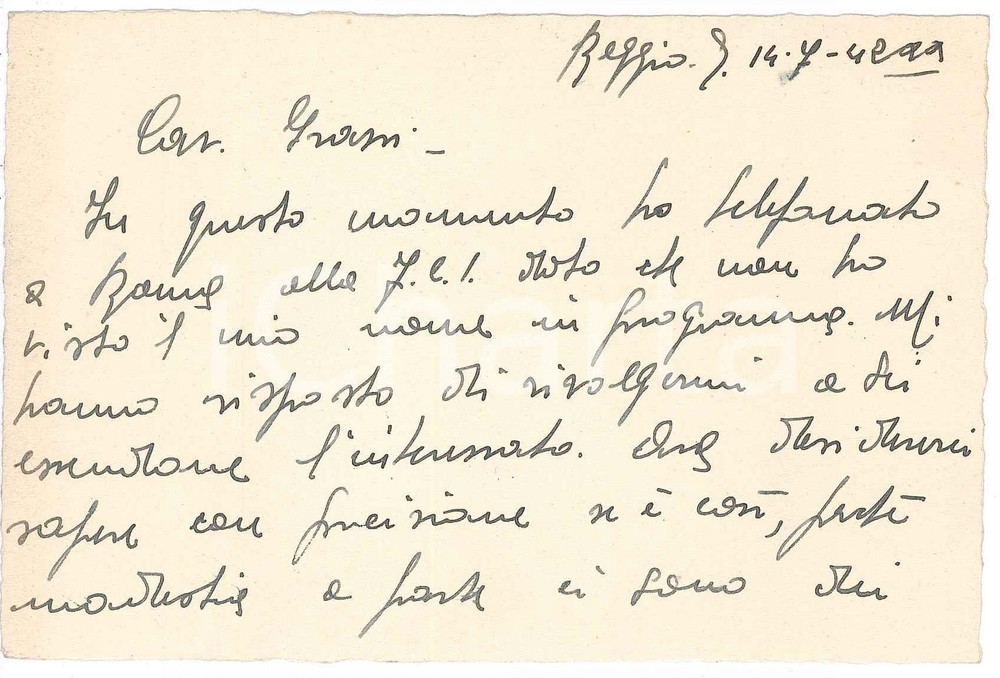 Reggio. E. 14.7-42 XX
Cav. Grassi -
In questo momento ho telefonato
a Roma alla F.C.I. dato che non ho
visto il mio nome in programma. Mi
hanno risposto di rivolgermi a Lei
essendone l'interessato. Ora desidererei
sapere con precisione se è così, perchè
modestia a parte ci sono dei